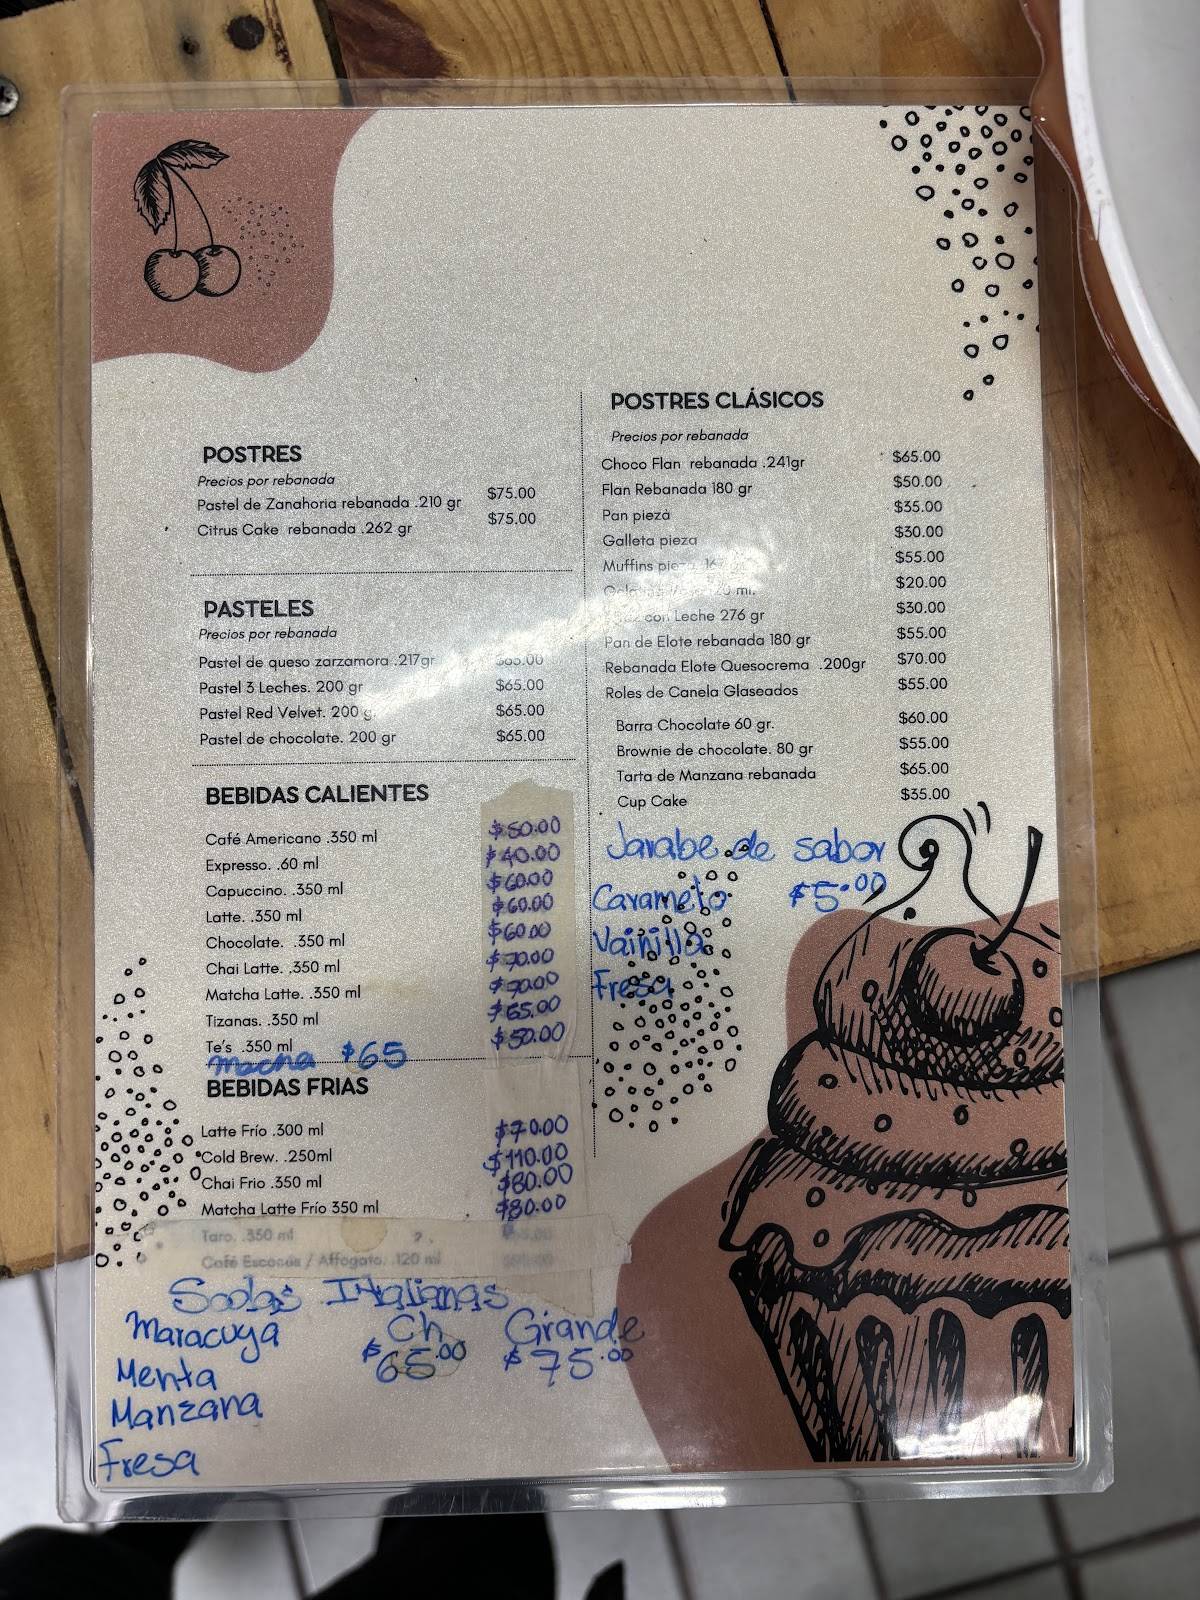 POSTRES
Precios por rebanada
Pastel de Zanahoria rebanada .210 gr $75.00
Citrus Cake rebanada .262 gr $75.00
PASTELES
Precios por rebanada
Pastel de queso zarzamora .217gr
Pastel 3 Leches. 200 gr $65.00
Pastel Red Velvet. 200 g $65.00
Pastel de chocolate. 200 gr $65.00
BEBIDAS CALIENTES
Café Americano .350 ml $50.00
Expresso. .60 ml $40.00
Capuccino. .350 ml $60.00
Latte. .350 ml $60.00
Chocolate. .350 ml $60.00
Chai Latte. .350 ml $70.00
Matcha Latte. .350 ml $70.00
Tizanas. .350 ml $65.00
Te's .350 ml $50.00
macha $65
BEBIDAS FRIAS
Latte Frío .300 ml $70.00
Cold Brew. .250ml $110.00
Chai Frio .350 ml $80.00
Matcha Latte Frío 350 ml $80.00
Taro. .350 ml
Café Escocés / Affogato. .120 ml
Sodas Italianas
Maracuya Ch Grande
Menta $65.00 $75.00
Manzana
Fresa
POSTRES CLÁSICOS
Precios por rebanada
Choco Flan rebanada .241gr $65.00
Flan Rebanada 180 gr $50.00
Pan pieza $35.00
Galleta pieza $30.00
Muffins $55.00
ml. $20.00
con Leche 276 gr $30.00
Pan de Elote rebanada 180 gr $55.00
Rebanada Elote Quesocrema .200gr $70.00
Roles de Canela Glaseados $55.00
Barra Chocolate 60 gr. $60.00
Brownie de chocolate. 80 gr $55.00
Tarta de Manzana rebanada $65.00
Cup Cake $35.00
Jarabe de sabor
Caramelo $5.00
Vainilla
Fresa